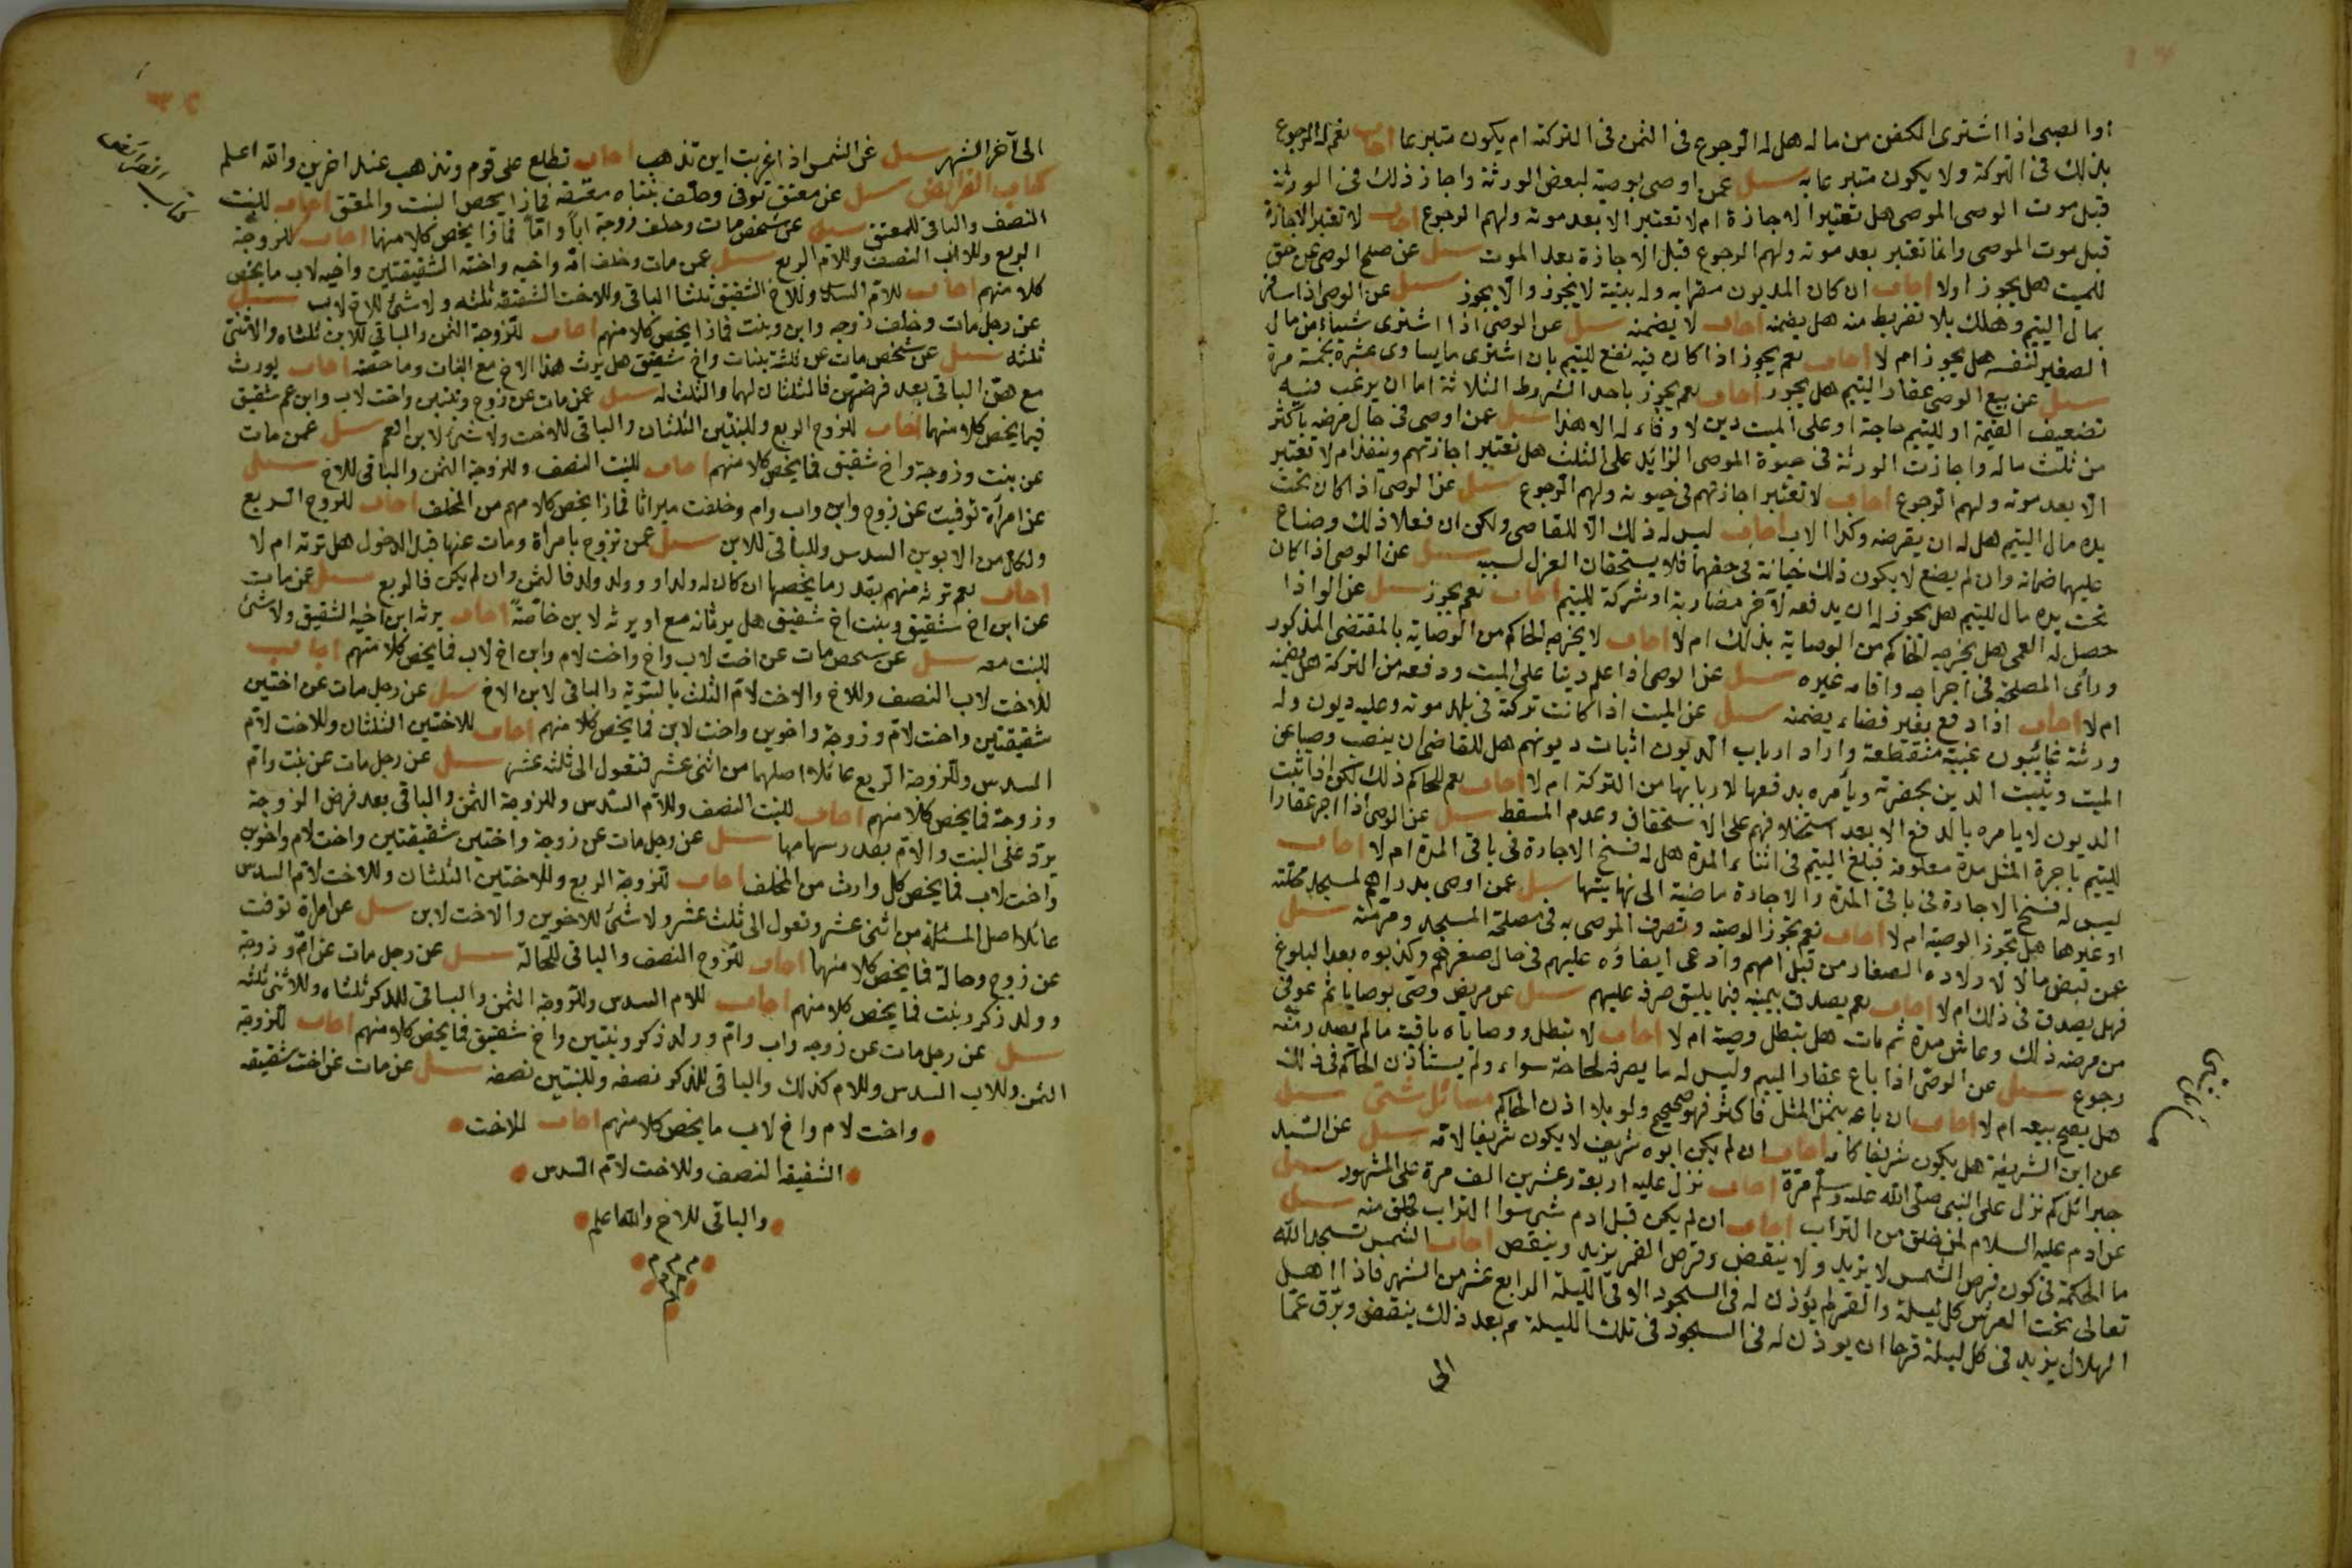 او الصبى اذا اشترى الكفن من ماله هل له الرجوع فى الثمن فى التركة ام يكون متبرعا اجاب نعم له الرجوع
بذلك فى التركة ولا يكون متبرعا به سئل عمن اوصى بوصية لبعض الورثة واجاز ذلك فى الورثة
قبل موت الوصى الموصى هل تعتبر الاجازة ام لا تعتبر الا بعد موته ولهم الرجوع اجاب لا تعتبر الاجازة
قبل موت الموصى وانما تعتبر بعد موته ولهم الرجوع قبل الاجازة بعد الموت سئل عن صلح الوصى عن حق
للميت هل يجوز اولا اجاب ان كان المديون مقرا به وله بينة لا يجوز والا يجوز سئل عن الوصى اذا سافر
بمال اليتيم وهلك بلا تفريط منه هل يضمنه اجاب لا يضمنه سئل عن الوصى اذا اشترى شيأ من مال
الصغير لنفسه هل يجوز ام لا اجاب نعم يجوز اذا كان فيه نفع لليتيم بان اشترى ما يساوى عشرة بخمسة عشرة
سئل عن بيع الوصى عقار اليتيم هل يجوز اجاب نعم يجوز باحد الشروط الثلاثة اما ان يرغب فيه
تضعيف القيمة او لليتيم حاجة او على الميت دين لا وفاء له الا هذا سئل عمن اوصى فى حال مرضه باكثر
من ثلث ماله واجازت الورثة فى حيوة الموصى الزائد على الثلث هل تعتبر اجازتهم وينفذ ام لا تعتبر
الا بعد موته ولهم الرجوع اجاب لا تعتبر اجازتهم فى حيوته ولهم الرجوع سئل عن الوصى اذا كان تحت
يده مال اليتيم هل له ان يقرضه وكذا الاب اجاب ليس له ذلك الا للقاضى ولكن ان فعلا ذلك وضاع
عليهما ضمانه وان لم يضع لا يكون ذلك خيانة فى حقهما فلا يستحقان العزل لسببه سئل عن الوصى اذا كان
تحت يده مال لليتيم هل يجوز له ان يدفعه لآخر مضاربة او شركة لليتيم اجاب نعم يجوز سئل عن الو اذا
حصل له العمى هل يخرجه الحاكم من الوصاية بذلك ام لا اجاب لا يخرجه الحاكم من الوصاية بالمقتضى المذكور
ورأى المصلحة فى اخراجه واقامة غيره سئل عن الوصى اذا علم دينا على الميت ودفعه من التركة هل يضمنه
ام لا اجاب اذا دفع بغير قضاء يضمنه سئل عن الميت اذا كانت تركته فى بلد موته وعليه ديون وله
ورثة غائبون غيبة منقطعة واراد ارباب الديون اثبات ديونهم هل للقاضى ان ينصب وصيا عن
الميت ويثبت الدين بحضرته ويأمره بدفعها لاربابها من التركة ام لا اجاب نعم للحاكم ذلك لكن اذا ثبت
الديون لا يامره بالدفع الا بعد استحلافهم على الاستحقاق وعدم المسقط سئل عن الوصى اذا اجر عقارا
لليتيم باجرة المثل مدة معلومة فبلغ اليتيم فى اثناء المدة هل له فسخ الاجارة فى باقى المدة ام لا اجاب
ليس له فسخ الاجارة فى باقى المدة والاجارة ماضية الى نهايتها سئل عمن اوصى بدراهم لمسجد محلته
او غيرها هل تجوز الوصية ام لا اجاب نعم تجوز الوصية وتصرف الموصى به فى مصلحة المسجد ومرمته سئل
عمن قبض مالا لاولاده الصغار من قبل امهم وادعى ايفاؤه عليهم فى حال صغرهم وكذبوه بعد البلوغ
فهل يصدق فى ذلك ام لا اجاب نعم يصدق بيمينه فيما يليق صرفه عليهم سئل عن مريض وصى بوصايا ثم عوفى
من مرضه ذلك وعاش مدة ثم مات هل يبطل وصية ام لا اجاب لا تبطل ووصاياه باقية مالم يصدر منه
رجوع سئل عن الوصى اذا باع عقار اليتيم وليس له ما يصرفه لحاجته سواء ولم يستأذن الحاكم فى ذلك
هل يصح بيعه ام لا اجاب ان باعه بثمن المثل فاكثر فهو صحيح ولو بلا اذن الحاكم مسائل شتى سئل
عن ابن الشريفة هل يكون شريفا كأمه اجاب ان لم يكن ابوه شريف لا يكون شريفا لامه سئل عن السيد
جبرائل كم نزل على النبى صلى الله عليه وسلم مرة اجاب نزل عليه اربعة وعشرين الف مرة على المشهور سئل
عن ادم عليه السلام لم خلق من التراب اجاب ان لم يكن قبل ادم شئ سوا التراب فخلق منه سئل
ما الحكمة فى كون قرص الشمس لا يزيد ولا ينقص وقرص القمر يزيد وينقص اجاب الشمس تسجد لله
تعالى تحت العرش كل ليلة والقمر لم يؤذن له فى السجود الا فى الليلة الرابع عشر من الشهر فاذا اهل
الهلال يزيد فى كل ليلة فرحا ان يوذن له فى السجود فى تلك الليلة ثم بعد ذلك ينقص ويرق غما
الى
مسائل شتى
الى آخر الشهر سئل عن الشمس اذا غربت اين تذهب اجاب تطلع على قوم وتذهب عند اخرين والله اعلم
كتاب الفرائض سئل عن معتق توفى وخلف بنتا ومعتقه فماذا يخص البنت والمعتق اجاب للبنت
النصف والباقى للمعتق سئل عن شخص مات وخلف زوجة اباً واماً فماذا يخص كلا منهما اجاب للزوجة
الربع وللاب النصف وللام الربع سئل عمن مات وخلف امه واخيه واخته الشقيقتين واخيه لاب ما يخص
كلا منهم اجاب للام السدس وللاخ الشقيق ثلثا الباقى وللاخت الشقيقة ثلثه ولا شئ للاخ لاب سئل
عن رجل مات وخلف زوجه وابن وبنت فماذا يخص كلا منهم اجاب للزوجة الثمن والباقى للابن ثلثاه والانثى
ثلثه سئل عن شخص مات عن ثلثة بنات واخ شقيق هل يرث هذا الاخ مع البنات وما حصته اجاب يورث
مع هن الباقى بعد فرضهن فالثلثان لهما والثلث له سئل عمن مات عن زوج وبنتين واخت لاب وابن عم شقيق
فيما يخص كلا منهما اجاب للزوج الربع وللبنتين الثلثان والباقى للاخت ولا شئ لابن العم سئل عمن مات
عن بنت وزوجة واخ شقيق فما يخص كلا منهم اجاب للبنت النصف وللزوجة الثمن والباقى للاخ سئل
عن امرأة توفيت عن زوج وابن واب وام وخلفت ميراثا فماذا يخص كلا مهم من المخلف اجاب للزوج الربع
ولكل من الابوين السدس والباقى للابن سئل عمن تزوج بامرأة ومات عنها قبل الدخول هل ترثه ام لا
اجاب نعم ترثه منهم بقدر ما يخصها ان كان له ولد او وولد ولد فالثمن وان لم يكن فالربع سئل عمن مات
عن ابن اخ شقيق وبنت اخ شقيق هل يرثانه مع او يرثه لابن خاصةً اجاب يرثه ابن اخيه الشقيق ولا شئ
للبنت معه سئل عن شخص مات عن اخت لاب واخ واخت لام وابن اخ لاب فما يخص كلا منهم اجاب
للاخت لاب النصف وللاخ والاخت لام الثلث بالسوية والباقى لابن الاخ سئل عن رجل مات عن اختين
شقيقتين واخت لام وزوجة واخوين واخت لابن فما يخص كلا منهم اجاب للاختين الثلثان وللاخت لام
السدس وللزوجة الربع عائلا اصلهما من اثنى عشر فتعول الى ثلثة عشر سئل عن رجل مات عن بنت وام
وزوجة فما يخص كلا منهم اجاب للبنت النصف وللام السدس وللزوجة الثمن والباقى بعد فرض الزوجة
يرد على البنت والام بقدر سهامها سئل عن رجل مات عن زوجة واختين شقيقتين واخت لام واخوين
واخت لاب فما يخص كل وارث من المخلف اجاب للزوجة الربع وللاختين الثلثان وللاخت لام السدس
عائلا اصل المسئلة من اثنى عشر وتعول الى ثلث عشر ولا شئ للاخوين والاخت لابن سئل عن امرأة توفت
عن زوج وخالة فما يخص كلا منهما اجاب للزوج النصف والباقى للخالة سئل عن رجل مات عن ام وزوجة
وولد ذكر وبنت فما يخص كلا منهم اجاب للام السدس وللزوجة الثمن والباقى للذكر ثلثاه وللانثى ثلثه
سئل عن رجل مات عن زوجه واب وام وولد ذكر وبنتين واخ شقيق فما يخص كلا منهم اجاب للزوجة
الثمن وللاب السدس وللام كذلك والباقى للذكر نصفه وللبنتين نصفه سئل عن مات عن اخت شقيقه
واخت لام واخ لاب ما يخص كلا منهم اجاب للاخت
الشقيقه النصف وللاخت لام السدس
والباقى للاخ والله اعلم
م م م
م م
م